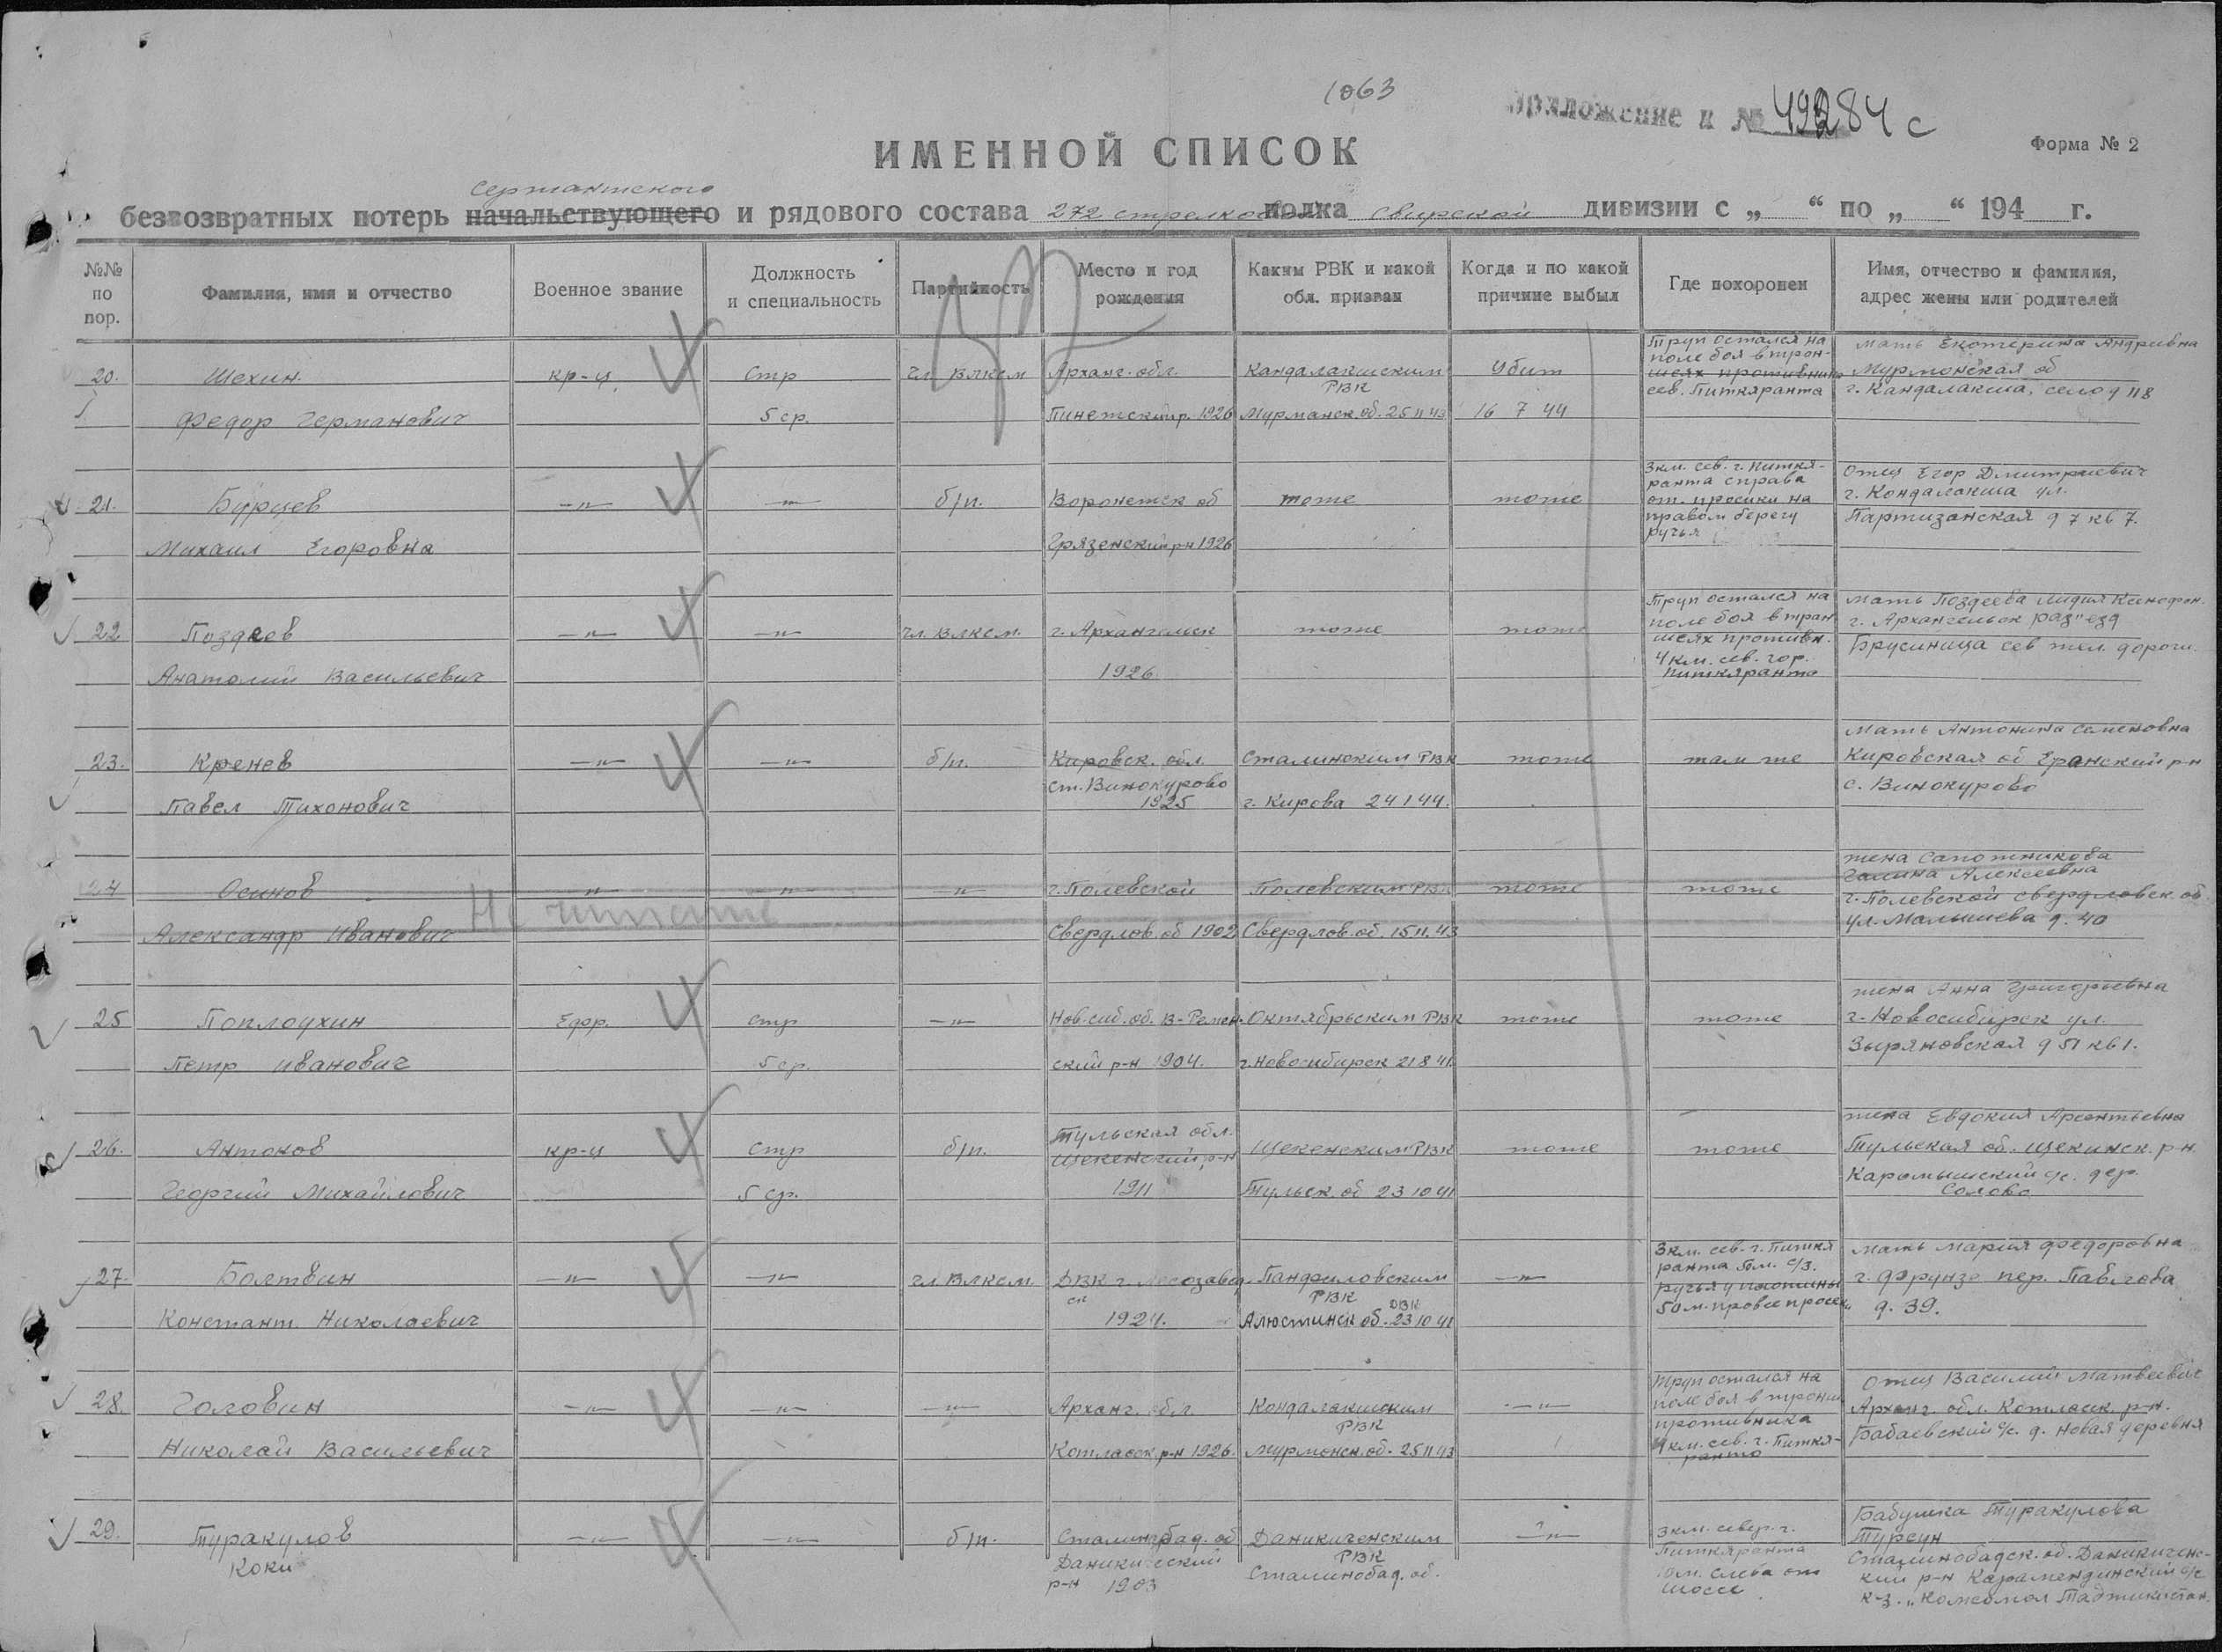 1063
Приложение к № 49284с
Форма № 2
ИМЕННОЙ СПИСОК
сержантского
безвозвратных потерь начальствующего и рядового состава 272 стрелкового полка Свирской дивизии с „ “ по „ “ 194 г.
№№ по пор.
Фамилия, имя и отчество
Военное звание
Должность и специальность
Партийность
Место и год рождения
Каким РВК и какой обл. призван
Когда и по какой причине выбыл
Где похоронен
Имя, отчество и фамилия, адрес жены или родителей
20. Шехин Федор Германович
кр-ц
Стр
5 ср.
чл. Влксм
Арханг. обл.
Пинетский р. 1926
Кандалакшским РВК
Мурманск. об. 25 11 43
Убит
16 7 44
Труп остался на
поле боя в тран-
шеях противника
сев. Питкяранта
мать Екотерина Андреевна
Мурмонская об
г. Кандалакша, село д 118
21. Бурцев Михаил Егоровна
-"-
-"-
б/п.
Воронежск об
Грязенский р-н 1926
тоже
тоже
3км. сев. г. Питкя-
ранта справа
от просики на
правом берегу
ручья
Отец Егор Дмитриевич
г. Кондалакша ул.
Партизанская д 7 кв 7.
22 Поздеев Анатолий Васильевич
-"-
-"-
чл. Влксм.
г. Архангельск
1926
тоже
тоже
Труп остался на
поле боя в тран
шеях противн.
4км. сев. гор.
Питкяранта
мать Поздеева Лидия Ксенофон.
г. Архангельск раз"езд
Брусиница сев жел. дороги.
23. Кренев Павел Тихонович
-"-
-"-
б/п.
Кировск. обл.
ст. Винокурово
1925
Сталинским РВК
г. Кирова 24 1 44.
тоже
там же
мать Антонина Семеновна
Кировская об Еранский р-н
с. Винокурово
24 Осинов Александр Иванович
Не читать
-"-
-"-
-"-
г. Полевской
Свердлов. об 1902
Полевским РВК
Свердлов. об. 15 11. 43
тоже
тоже
жена Сапожникова
Галина Алексеевна
г. Полевской Свердловск. об
ул. Малышева д. 40
25 Поплоухин Петр Иванович
Ефр.
стр
5 ср.
-"-
Нов-сиб. об. В-
ский р-н 1904.
Октябрьским РВК
г. Новосибирск 21 8 41.
тоже
тоже
жена Анна Григорьевна
г. Новосибирск ул.
Зыряновская д 51 кв 1.
26. Антонов Георгий Михайлович
кр-ц
Стр
5 ср.
б/п.
Тульская обл.
Щекенский р-н
1911
Щекенским РВК
Тульск. об 23 10 41
тоже
тоже
жена Евдокия Арсентьевна
Тульская об. Щекинск. р-н
Каромышский с/с. дер.
Солово
27. Болтвин Констант. Николаевич
-"-
-"-
чл. Влксм
ДВК г. Лесозавод
ск
1924.
Панфиловским РВК
ДВК
Алюстинск об. 23 10 41
-"-
3км. сев. г. Питкя
ранта
ручья у плотины
50 м. правее просек.
мать Мария Федоровна
г. Фрунзе пер. Павлова
д. 39.
28. Головин Николай Васильевич
-"-
-"-
-"-
Арханг. обл.
Котласск р-н 1926.
Кондалакшским РВК
Мурмонск. об. 25 11 43
-"-
Труп остался на
поле боя в транш
противника
4км. сев. г. Питкя-
ранта
отец Василий Матвеевич
Арханг. обл. Котласк. р-н.
Бабаевский с/с. д. Новая деревня
29. Туракулов Коки
-"-
-"-
б/п.
Сталинабад. об
Даникический
р-н 1903
Даникиченским РВК
Сталинобад. об.
-"-
3км. север. г.
Питкяранта
10м. слева от
шоссе
Бабушка Туракулова
Турсун
Сталинободск. об. Даникиченс-
кий р-н Карамендинский с/с
к-з. „Комсомол Таджикистан.